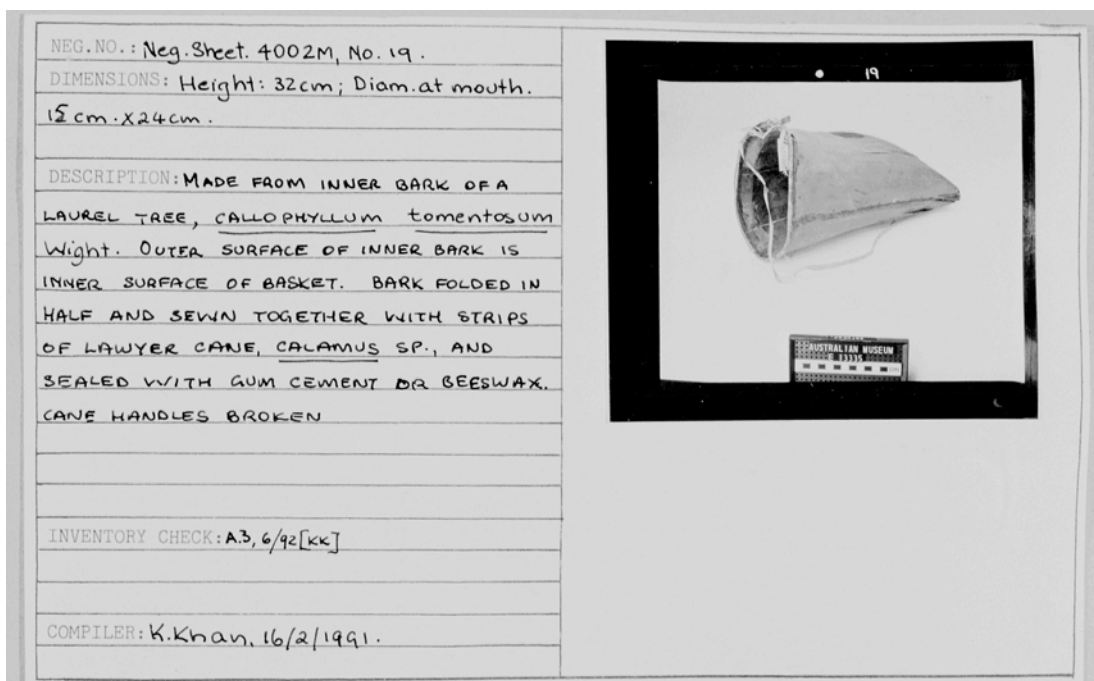 NEG.NO.: Neg. Sheet. 4002M, No. 19.
DIMENSIONS: Height: 32cm; Diam. at mouth.
15 cm. x 24cm.
DESCRIPTION: MADE FROM INNER BARK OF A
LAUREL TREE, CALLOPHYLLUM tomentosum
Wight. OUTER SURFACE OF INNER BARK IS
INNER SURFACE OF BASKET. BARK FOLDED IN
HALF AND SEWN TOGETHER WITH STRIPS
OF LAWYER CANE, CALAMUS SP., AND
SEALED WITH GUM CEMENT OR BEESWAX.
CANE HANDLES BROKEN
INVENTORY CHECK: A.3, 6/92 [KK]
COMPILER: K. Khan, 16/2/1991.
19
AUSTRALIAN MUSEUM
E 13335